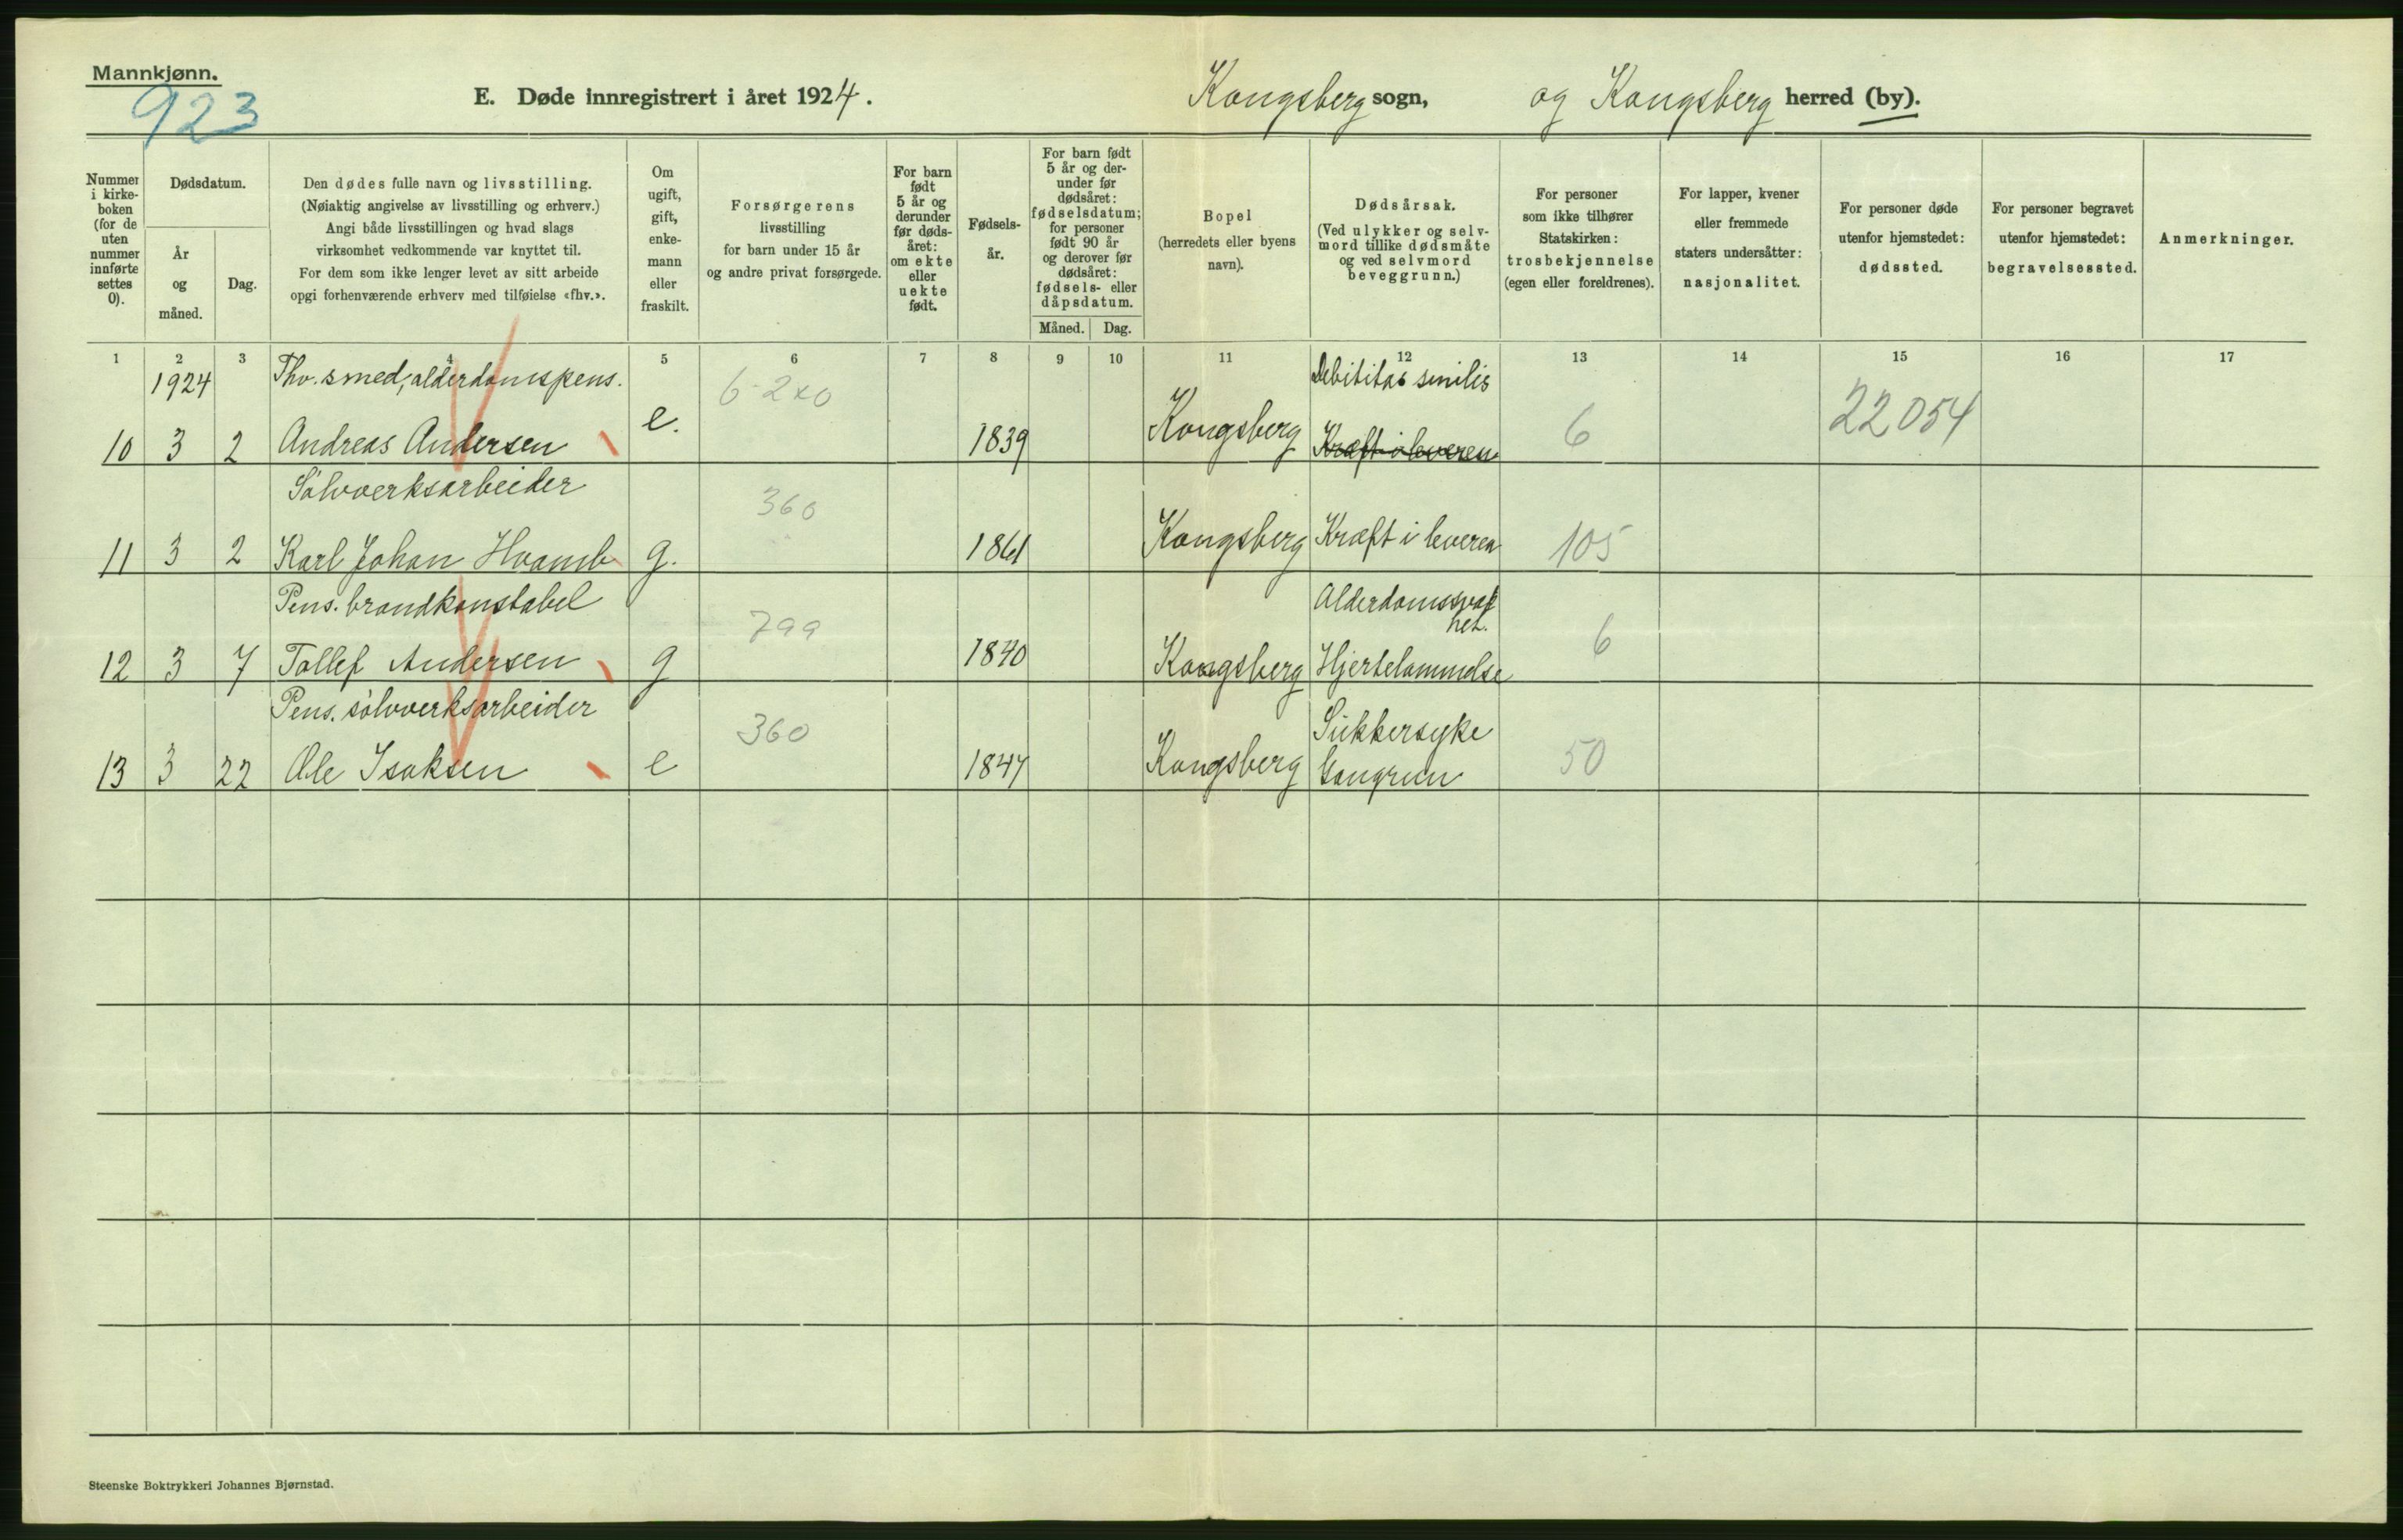 Mannkjønn.
923
E. Døde innregistrert i året 1924.
Kongsberg sogn,
og Kongsberg herred (by).
Nummer i kirke- boken (for de uten nummer innførte settes 0).
Dødsdatum.
År og måned.
Dag.
Den dødes fulle navn og livsstilling.
(Nøiaktig angivelse av livsstilling og erhverv.)
Angi både livsstillingen og hvad slags
virksomhet vedkommende var knyttet til.
For dem som ikke lenger levet av sitt arbeide
opgi forhenværende erhverv med tilføielse «fhv.».
Om ugift, gift, enke- mann eller fraskilt.
Forsørgerens
livsstilling
for barn under 15 år
og andre privat forsørgede.
For barn født 5 år og derunder før døds- året: om ekte eller uekte født.
Fødsels- år.
For barn født 5 år og der- under før dødsåret: fødselsdatum; for personer født 90 år og derover før dødsåret: fødsels- eller dåpsdatum.
Måned. Dag.
Bopel
(herredets eller byens
navn).
Dødsårsak.
(Ved ulykker og selv-
mord tillike dødsmåte
og ved selvmord
beveggrunn.)
For personer
som ikke tilhører
Statskirken:
trosbekjennelse
(egen eller foreldrenes).
For lapper, kvener
eller fremmede
staters undersåtter:
nasjonalitet.
For personer døde
utenfor hjemstedet:
dødssted.
For personer begravet
utenfor hjemstedet:
begravelsessted.
Anmerkninger.
1 2 3 4 5 6 7 8 9 10 11 12 13 14 15 16 17
1924 Fhv. smed, alderdomspens. 6-2x0 Debilitas senilis
10 3 2 Andreas Andersen e. 1839 Kongsberg Kræft i leveren 6 22054
Sølvverksarbeider 360
11 3 2 Karl Johan Hvamb g. 1861 Kongsberg Kræft i leveren 105
Pens. brandkonstabel 799 Alderdomssvak
het.
12 3 7 Tollef Andersen g 1840 Kongsberg Hjertelammelse 6
Pens. sølvverksarbeider 360 Sukkersyke
13 3 22 Ole Isaksen e 1847 Kongsberg Gangren 50
Steenske Boktrykkeri Johannes Bjørnstad.